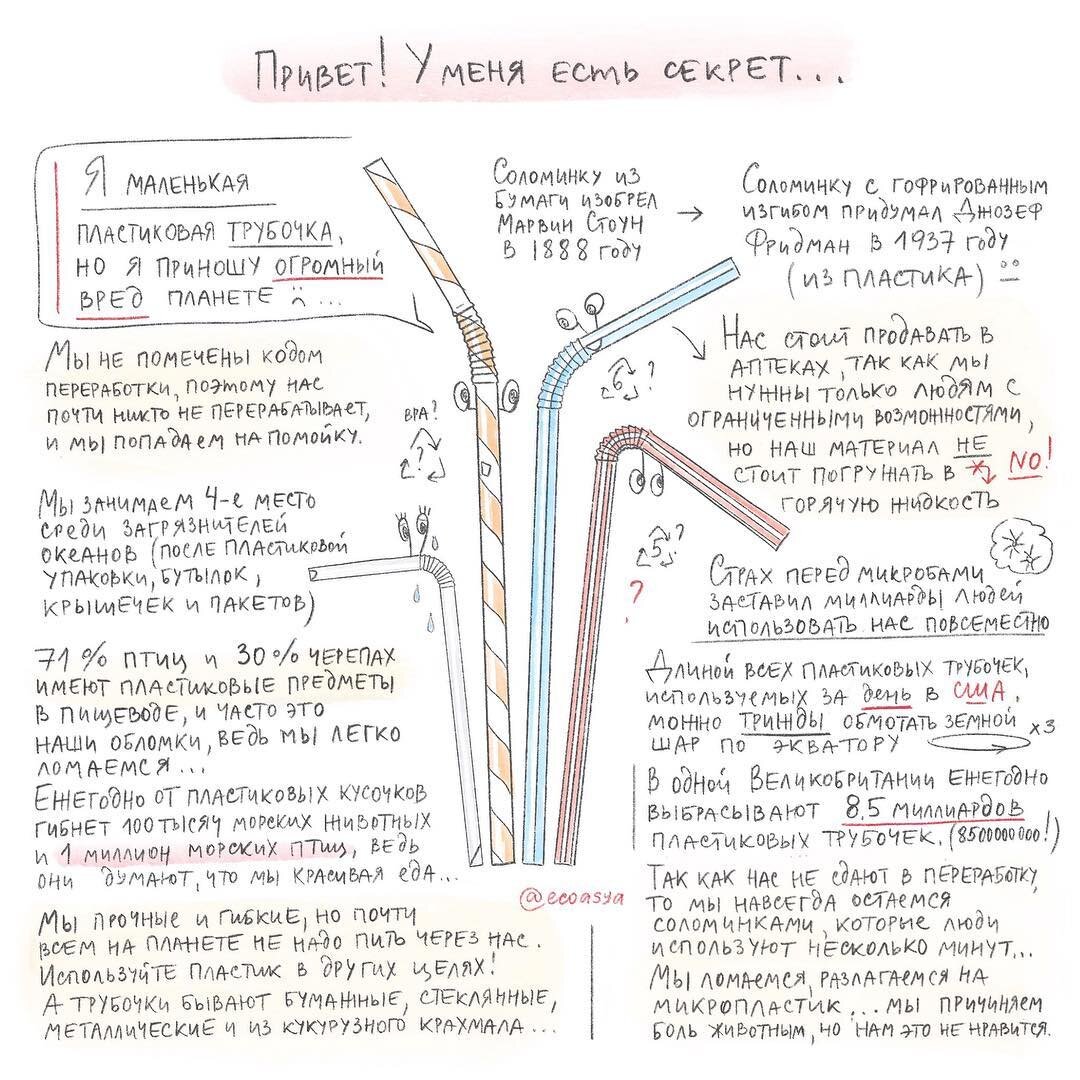 Привет! У меня есть секрет...
Я маленькая
пластиковая трубочка,
но я приношу огромный
вред планете :( ...
Соломинку из
бумаги изобрел
Марвин Стоун →
в 1888 году
Соломинку с гофрированным
изгибом придумал Джозеф
Фридман в 1937 году
(из пластика)
Мы не помечены кодом
переработки, поэтому нас
почти никто не перерабатывает,
и мы попадаем на помойку.
BPA?
?
6 ?
5 ?
?
Нас стоит продавать в
аптеках, так как мы
нужны только людям с
ограниченными возможностями,
но наш материал не
стоит погружать в * NO!
горячую жидкость
Мы занимаем 4-е место
среди загрязнителей
океанов (после пластиковой
упаковки, бутылок,
крышечек и пакетов)
Страх перед микробами
заставил миллиарды людей
использовать нас повсеместно
71% птиц и 30% черепах
имеют пластиковые предметы
в пищеводе, и часто это
наши обломки, ведь мы легко
ломаемся...
Ежегодно от пластиковых кусочков
гибнет 100 тысяч морских животных
и 1 миллион морских птиц, ведь
они думают, что мы красивая еда...
Длиной всех пластиковых трубочек,
используемых за день в США,
можно трижды обмотать земной
шар по экватору x3
В одной Великобритании ежегодно
выбрасывают 8,5 миллиардов
пластиковых трубочек. (8500000000!)
@ecoasya
Мы прочные и гибкие, но почти
всем на планете не надо пить через нас.
Используйте пластик в других целях!
А трубочки бывают бумажные, стеклянные,
металлические и из кукурузного крахмала...
Так как нас не сдают в переработку,
то мы навсегда остаемся
соломинками, которые люди
используют несколько минут...
Мы ломаемся, разлагаемся на
микропластик... мы причиняем
боль животным, но нам это не нравится.